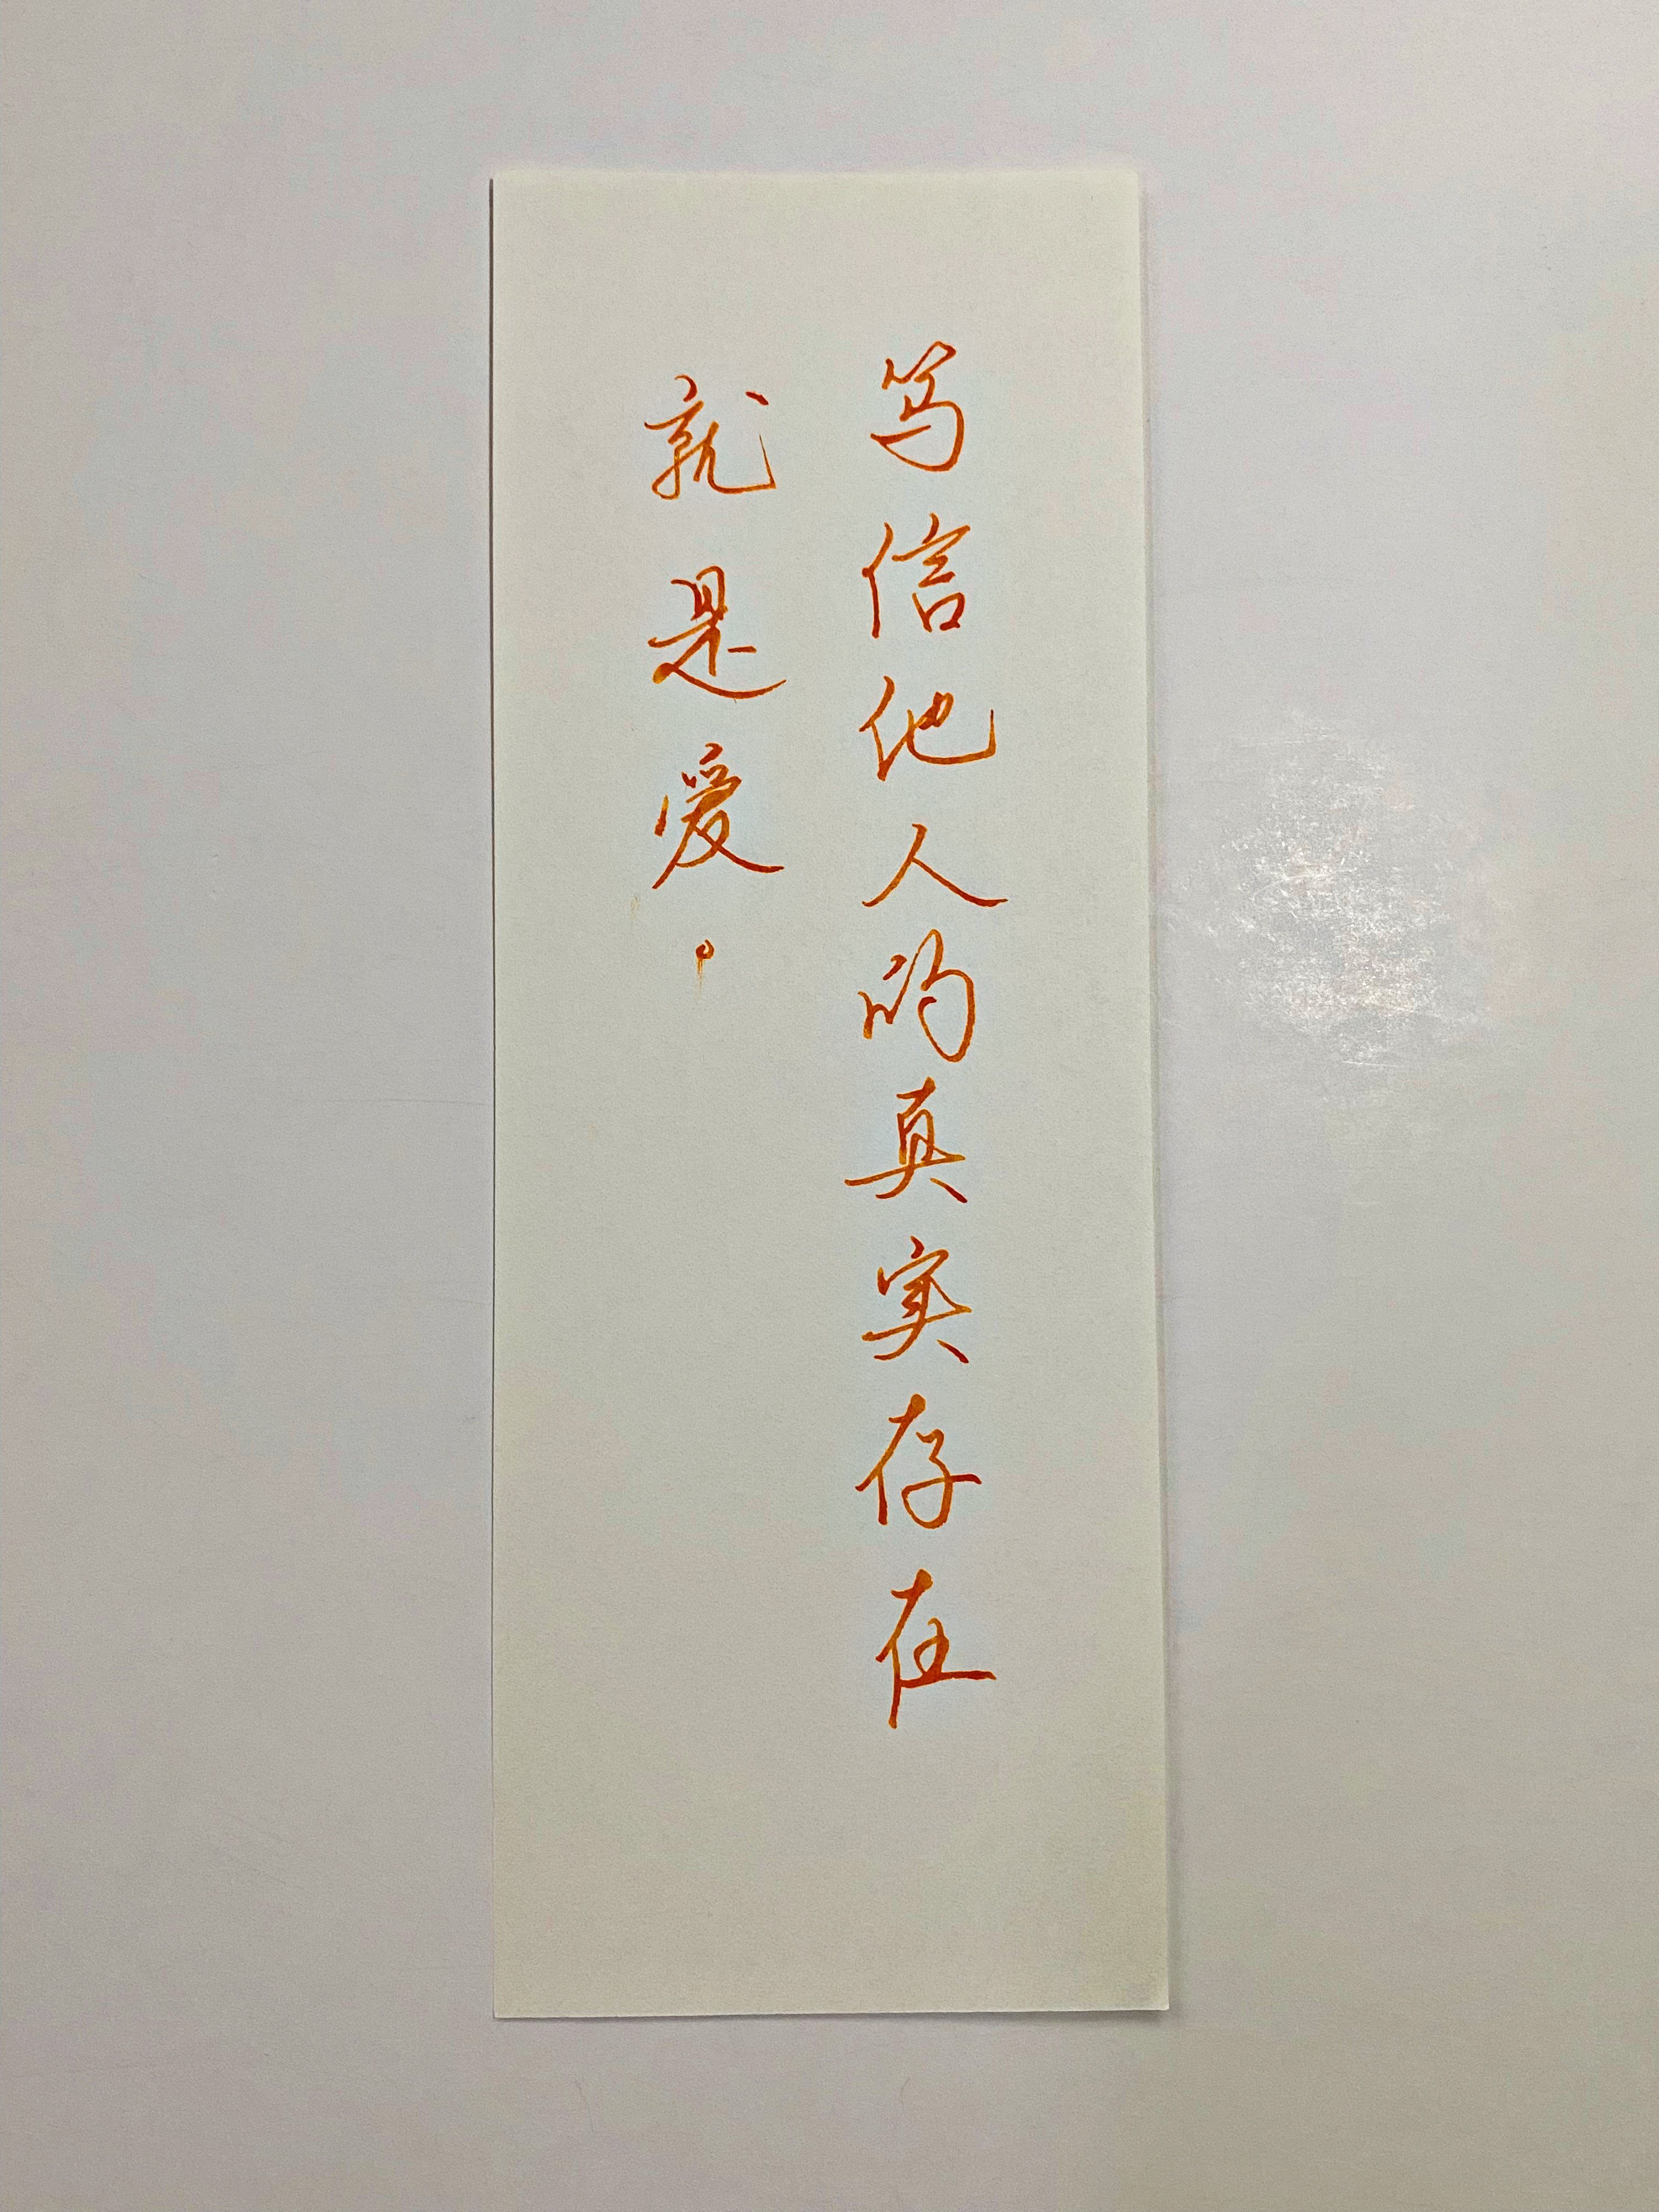 笃信他人的真实存在
就是爱。